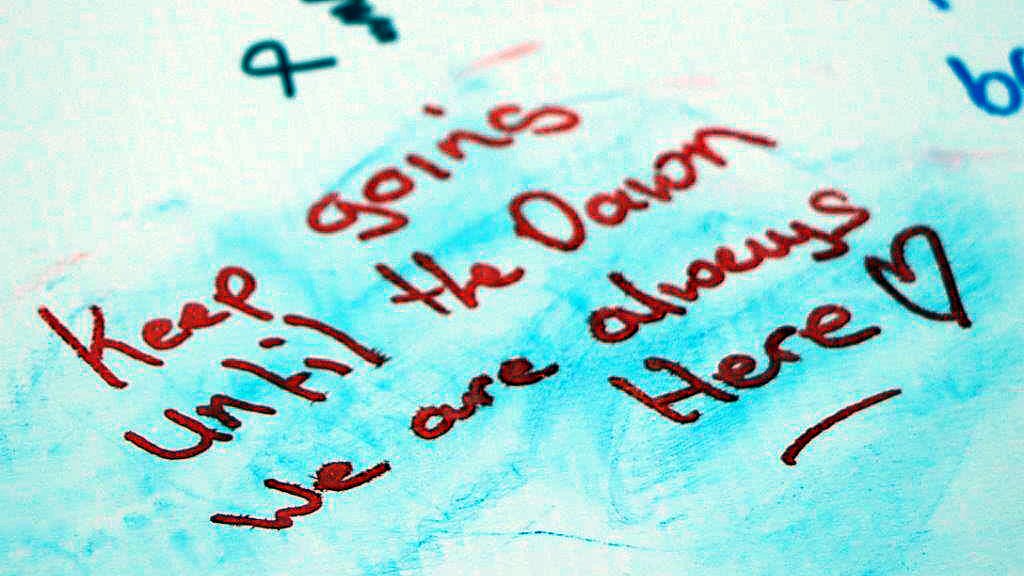 Keep going
until the Dawn
we are always
Here ♡